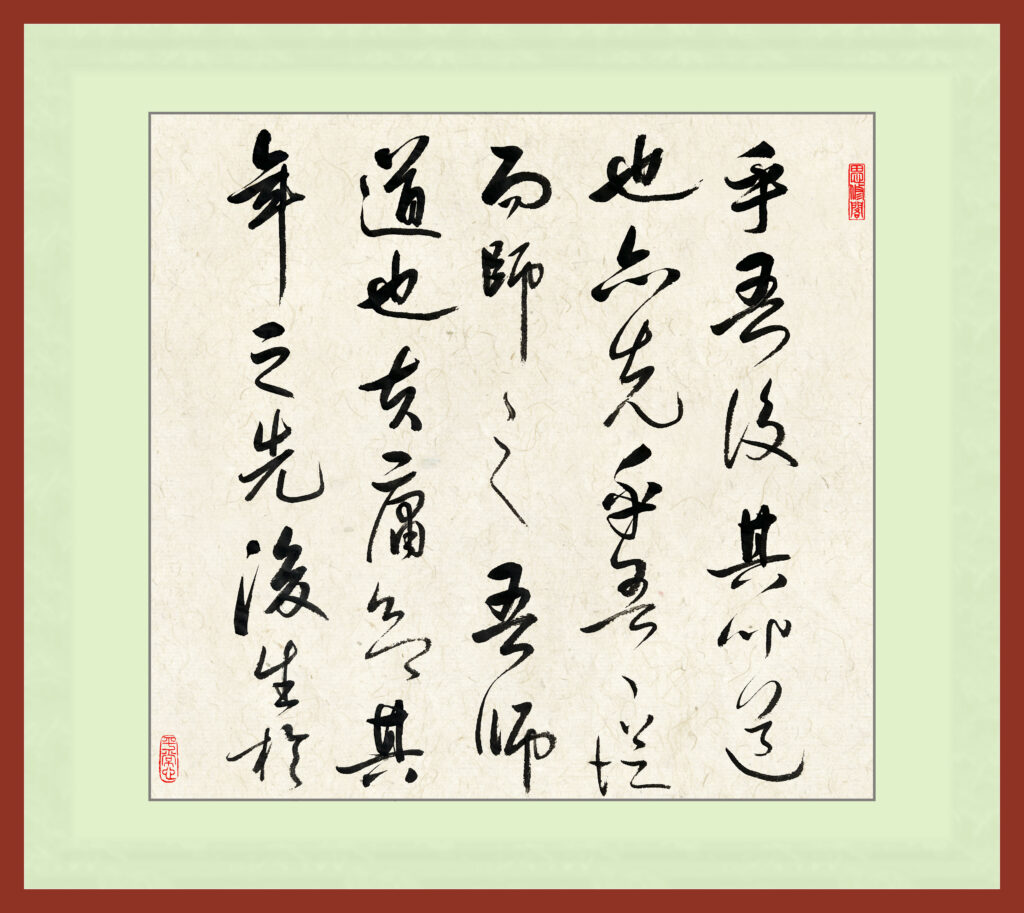 思修閣
乎吾後其聞道
也亦先乎吾々從
而師之吾師
道也夫庸知其
年之先後生於
平常心